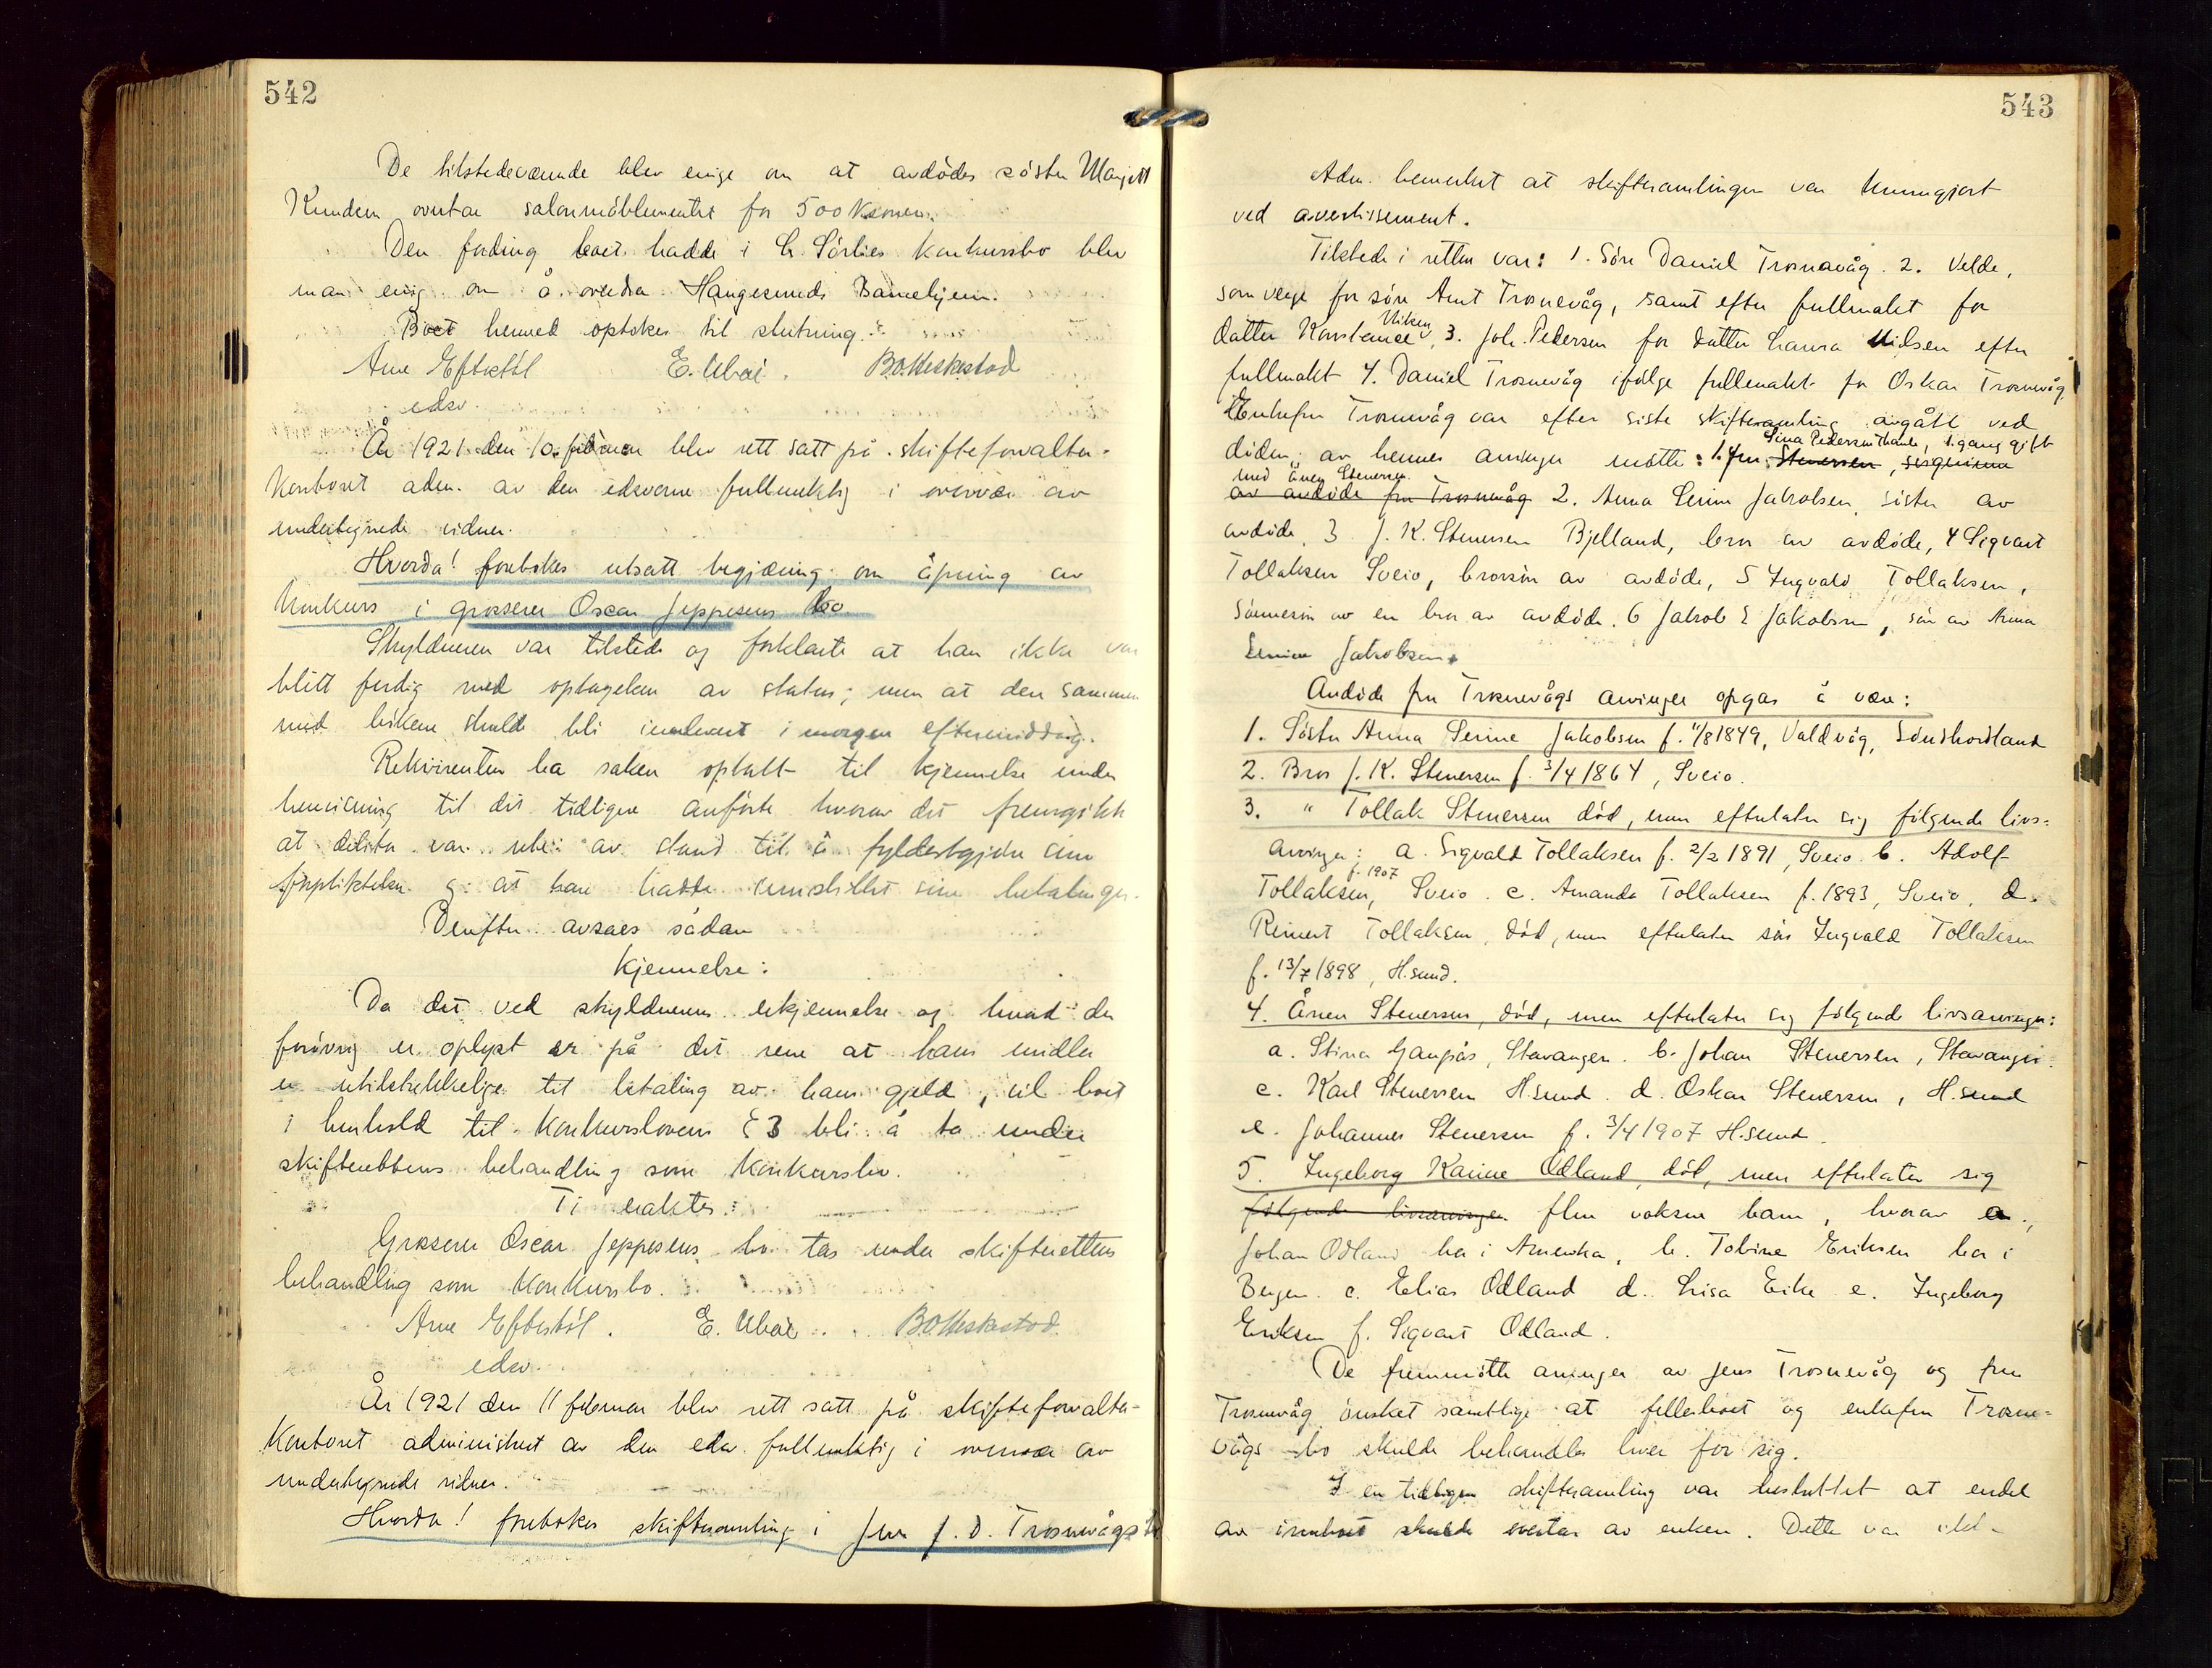 542
De tilstedeværende blev enige om at avdödes söster Marjett
Knudsen overtar salonmöblementet for 500 kroner.
Den fording boet hadde i Sörlies konkursbo blev
man enig om å overdra Haugesunds Barnehjem.
Boet hermed optokes til slutning.
Arne Eftestöl E. Ubøe. B.O. Meskestad
edsv.
År 1921 den 10. februar blev rett satt på skifteforvalter-
kontoret adm. av den edsvorne fullmektig i overvær av
undertegnede vidner.
Hvorda! foretokes utsatt begjæring om åpning av
konkurs i grosserer Oscar Jeppesens bo
Skyldneren var tilstede og forklarte at han ikke var
blitt ferdig med optagelsen av status; men at den sammen
med bökene skulde bli innlevert i morgen eftermiddag.
Rekvirenten ba saken optatt til kjennelse under
henvisning til det tidligere anförte hvorav det fremgikk
at debitor var ute av stand til å fyldestgjöre sine
forpliktelser og at han hadde innstillet sine betalinger.
Derefter avsaes sådan
Kjennelse:
Da det ved skyldnerens erkjennelse og hvad der
forövrig er oplyst er på det rene at hans midler
er utilstrekkelige til betaling av hans gjeld, vil boet
i henhold til konkurslovens § 3 bli å ta under
skifterettens behandling som konkursbo.
Ti eraktes:
Grosserer Oscar Jeppesens bo tas under skifterettens
behandling som konkursbo.
Arne Eftestöl. E. Ubøe. B.O. Meskestad.
edsv.
År 1921 den 11 februar blev rett satt på skifteforvalter-
kontoret administrert av den edsv. fullmektig i overvær av
undertegnede vidner.
Hvorda! foretokes skiftesamling i Jens J. D. Trosnevågs bo
543
Adm. bemerket at skiftesamlingen var kunngjort
ved avertissement.
Tilstede i retten var: 1. Sön Daniel Trosnavåg. 2. Velde,
som verge for sön Arnt Trosnevåg, samt efter fullmakt for
datter Konstanse Viken, 3. Joh. Pedersen for datter Laura Nilsen efter
fullmakt 4. Daniel Trosnevåg ifölge fullmakt for Oskar Trosnevåg.
Enkefru Trosnevåg var efter siste skiftesamling avgått ved
döden; av hennes arvinger mötte: 1. fru Stenersen, svigerinne Stina Pedersen Thants, 1. gang gift
med Ånen Stenersen. av avdöde fru Trosnevåg 2. Anna Serine Jakobsen, söster av
avdöde, 3 J. K. Stenersen Bjelland, bror av avdöde, 4 Sigvart
Tollaksen Sveio, brorsön av avdöde, 5 Ingvald Tollaksen,
sönnesön av en bror av avdöde. 6 Jakob S Jakobsen, sön av Anna
Serine Jakobsen.
Avdöde fru Trosnevågs arvinger opgas å være:
1. Söster Anna Serine Jakobsen f. 11/8 1849, Valdvåg, Söndhordland
2. Bror J. K. Stenersen f. 3/4 1864, Sveio.
3. " Tollak Stenersen död, men efterlater sig fölgende livs-
arvinger: a. Sigvald Tollaksen f. 2/2 1891, Sveio. b. Adolf
Tollaksen, f. 1907 Sveio. c. Amanda Tollaksen f. 1893, Sveio, d.
Reinert Tollaksen, död, men efterlater sön Ingvald Tollaksen
f. 13/7 1898, H.sund.
4. Ånen Stenersen, död, men efterlater sig fölgende livsarvinger:
a. Stina Gaupås, Stavanger. b. Johan Stenersen, Stavanger.
c. Karl Stenersen H.sund. d. Oskar Stenersen, H.sund
e. Johannes Stenersen f. 3/4 1907 H.sund.
5. Ingeborg Karine Ödland, död, men efterlater sig
fölgende livsarvinger flere voksne barn, hvorav a.,
Johan Odland bor i Amerika, b. Tobine Eriksen bor i
Bergen. c. Elias Odland d. Lisa Eike e. Ingeborg
Eriksen f. Sigvart Odland.
De fremmötte arvinger av Jens Trosnevåg og fru
Trosnevåg önsket samtlige at fellesboet og enkefru Trosne-
vågs bo skulde behandles hver for sig.
I en tidligere skiftesamling var besluttet at endel
av innboet skulde overtas av enken. Dette var ikke